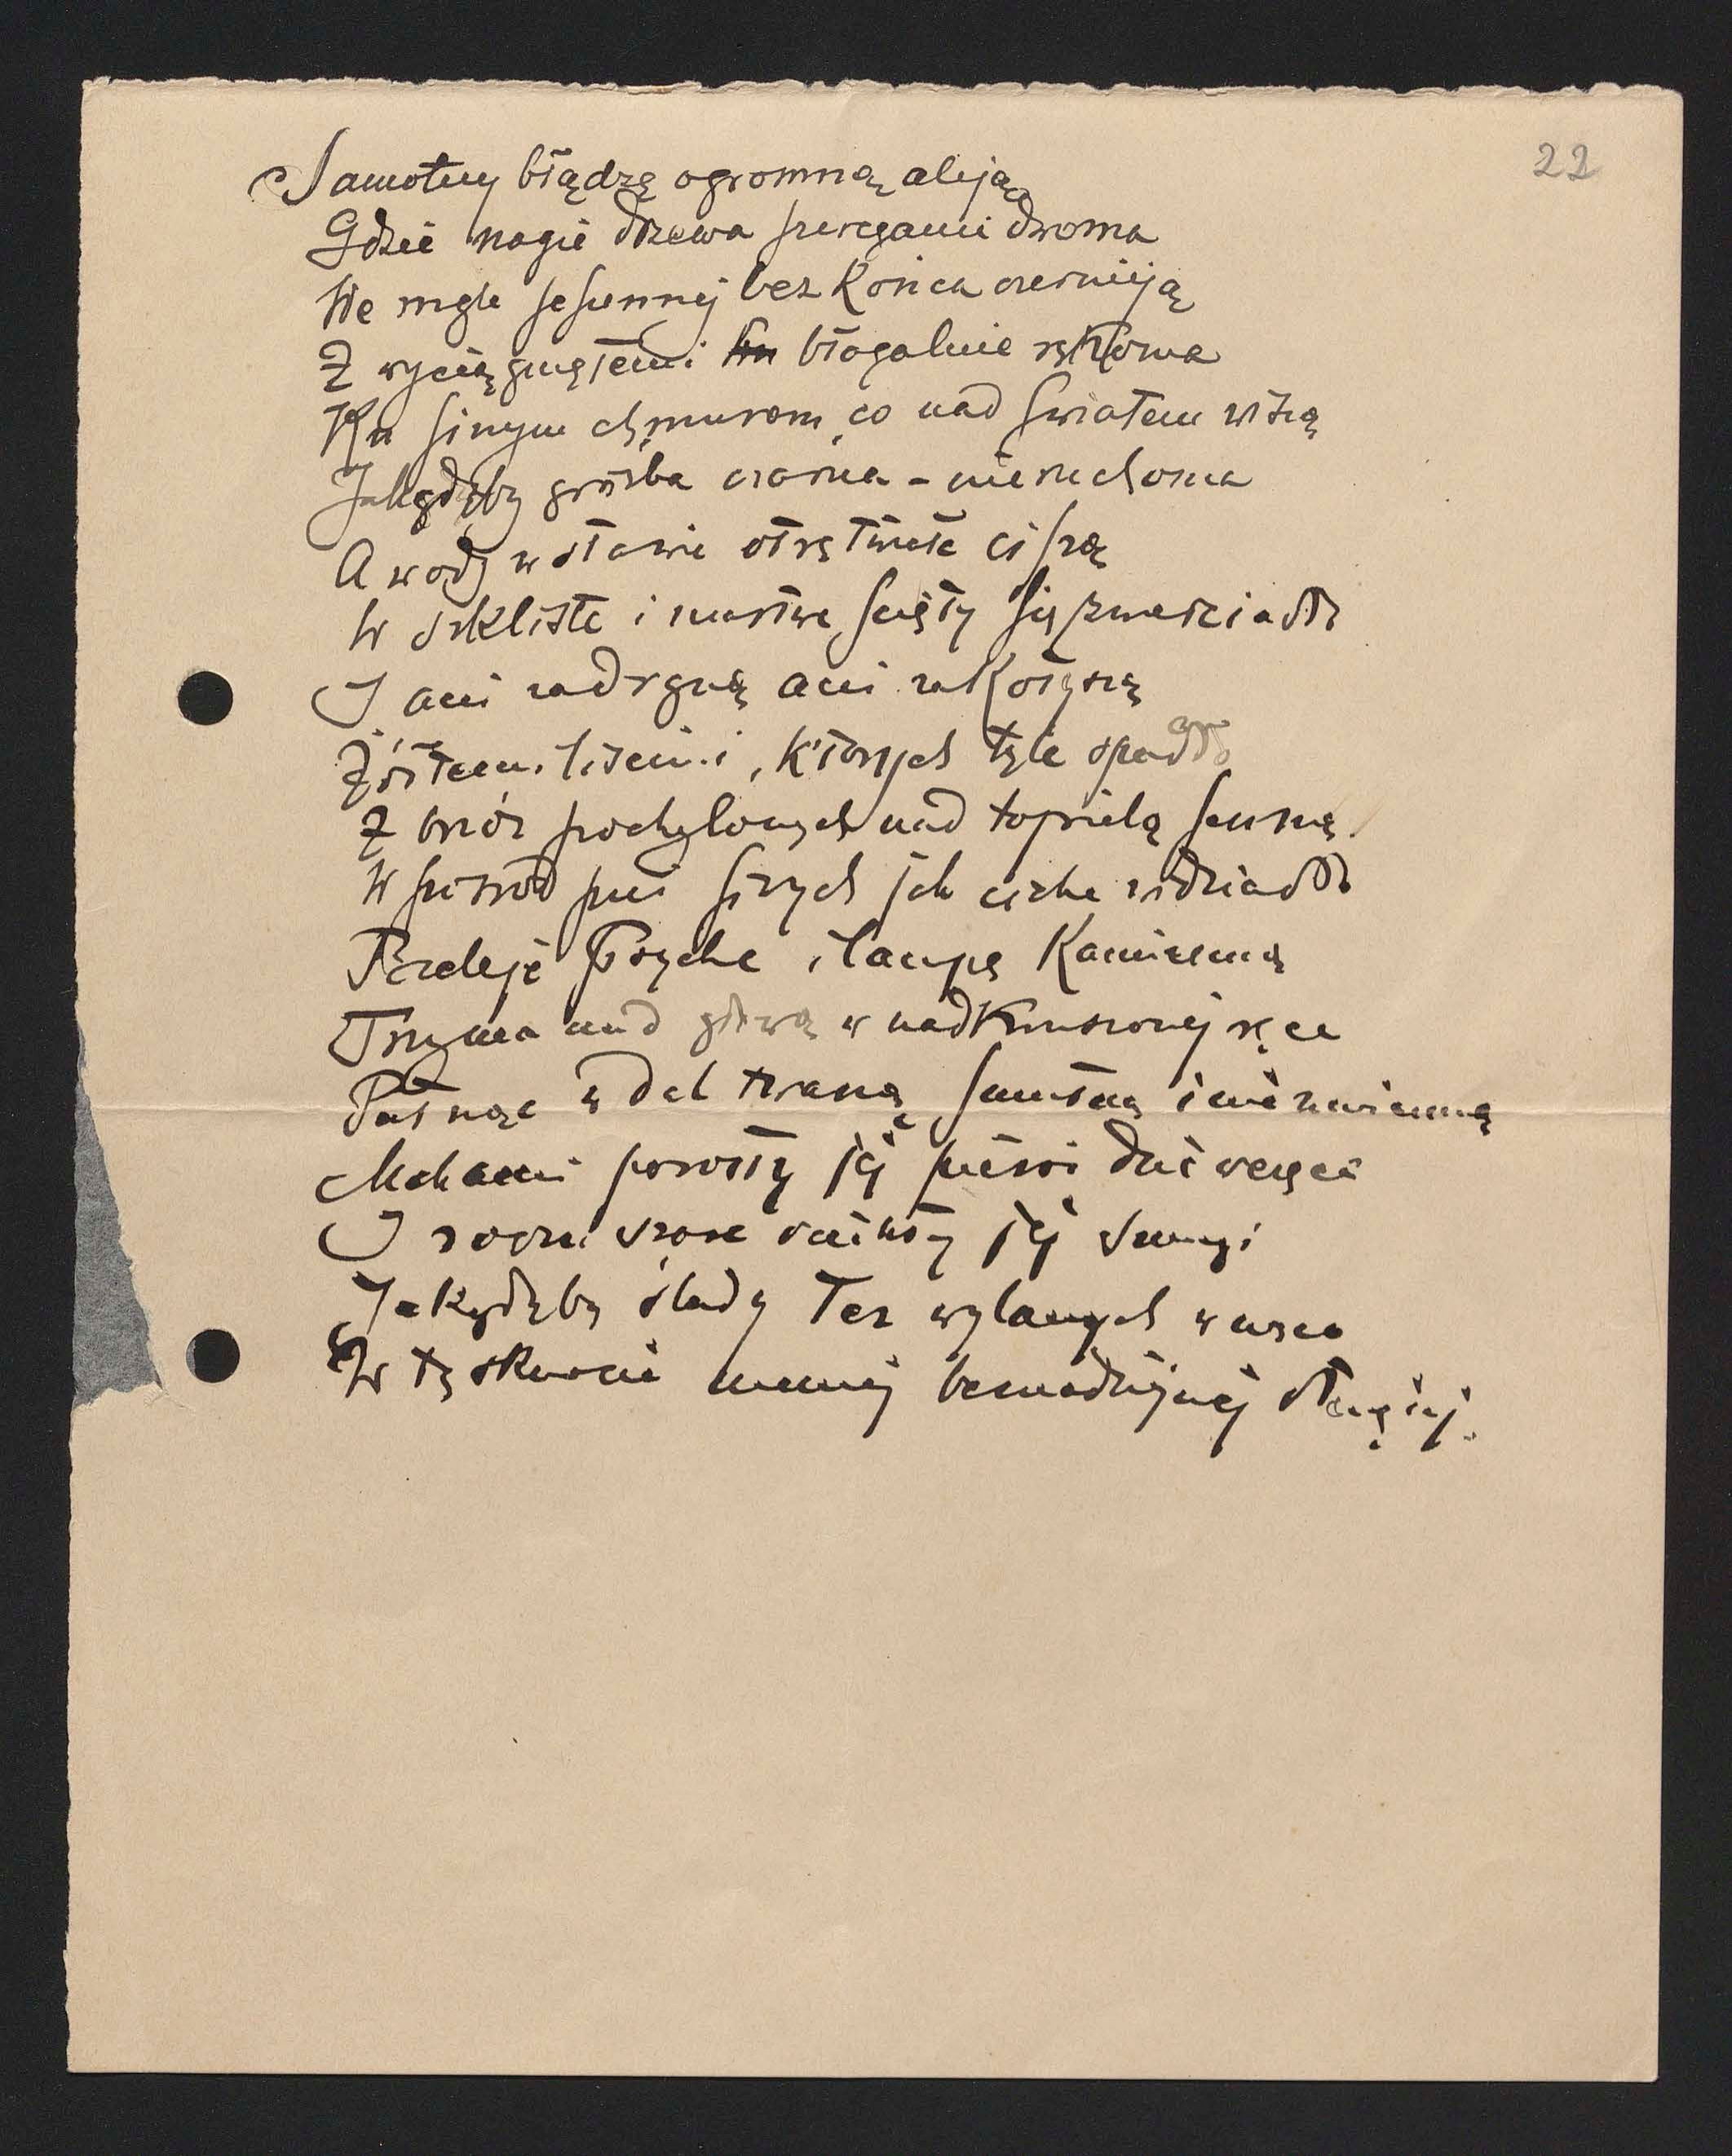 22
Samotny błądzę ogromną aleją
Gdzie nagie drzewa szeregami dwoma
We mgle jesiennej bez końca czernieją
Z wyciągniętemi błagalnie rękoma
Ku sinym chmurom, co nad światem wiszą
Jakgdyby groźba czarna - nieruchoma
A wody w stawie otrętwiałe ciszą
W szkliste i martwe ścięły się zwierciadło
I ani zadrgną ani zakołyszą
Żółtemi liśćmi, których tyle opadło
Z brzóz pochylonych nad topielą senną.
W pośród pni sinych jak ciche widziadło
Bieleje Psyche i lampę kamienną
Trzyma nad głową w nadkruszonej ręce
Patrząc w dal twarzą smutną i niezmienną
Mchami porosły jej piersi dziewczęce
I rosa czoło jej smugi
Jakgdyby ślady łez wylanych w męce
W tęsknocie niemej beznadziejnej długiej.